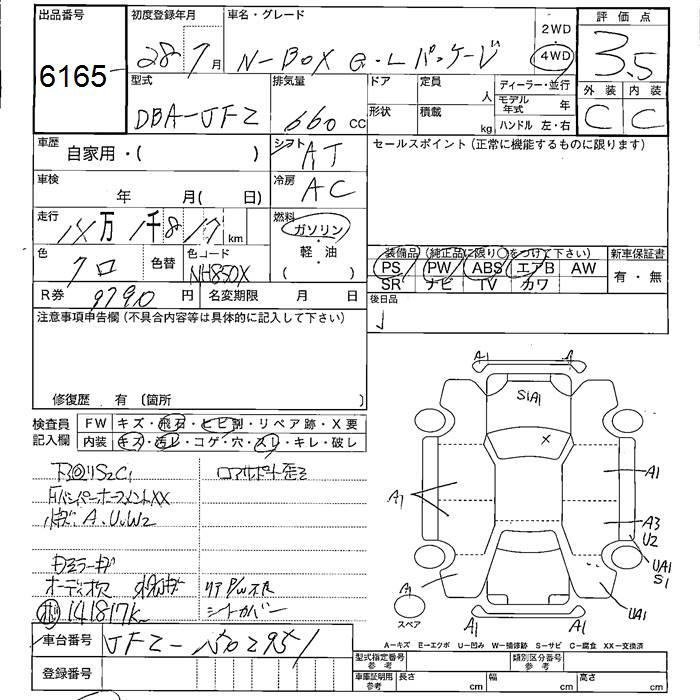 出品番号
6165
初度登録年月
28年7月
車名・グレード
N-BOX G・Lパッケージ
2WD
4WD
評価点
3.5
外装 内装
C C
型式
DBA-JF2
排気量
660 cc
ドア
形状
定員 人
積載 kg
ディーラー・並行
モデル年式 年
ハンドル 左・右
車歴
自家用・( )
シフト
AT
車検
年 月( 日)
冷房
AC
走行
14万1千817 km
燃料
ガソリン
軽油
( )
色
クロ
色替
色コード
NH850X
R券 9790 円
名変期限 月 日
セールスポイント(正常に機能するものに限ります)
装備品(純正品に限り○をつけて下さい)
PS PW ABS エアB AW
SR ナビ TV カワ
新車保証書
有・無
後日品
注意事項申告欄(不具合内容等は具体的に記入して下さい)
修復歴 有(箇所 )
検査員記入欄
FW キズ・飛石・ヒビ割・リペア跡・X要
内装 キズ・汚レ・コゲ・穴・スレ・キレ・破レ
下回リS2C1
ロアサポート歪ミ
FバンパーホーフメントXX
小キズ、A、U、W2
ミラーキズ
オーディオ欠
リアP/W不良
141817K
シートカバー
車台番号
登録番号
A1 A
S1A1
X
A1
A1
A3
U2
UA1
S1
A1
UA1
スペア
A1 A1
A-キズ E-エクボ U-凹み W-補修跡 S-サビ C-腐食 XX-交換済
型式指定番号 参考
類別区分番号 参考
車庫証明用 参考
長さ cm
幅 cm
高さ cm